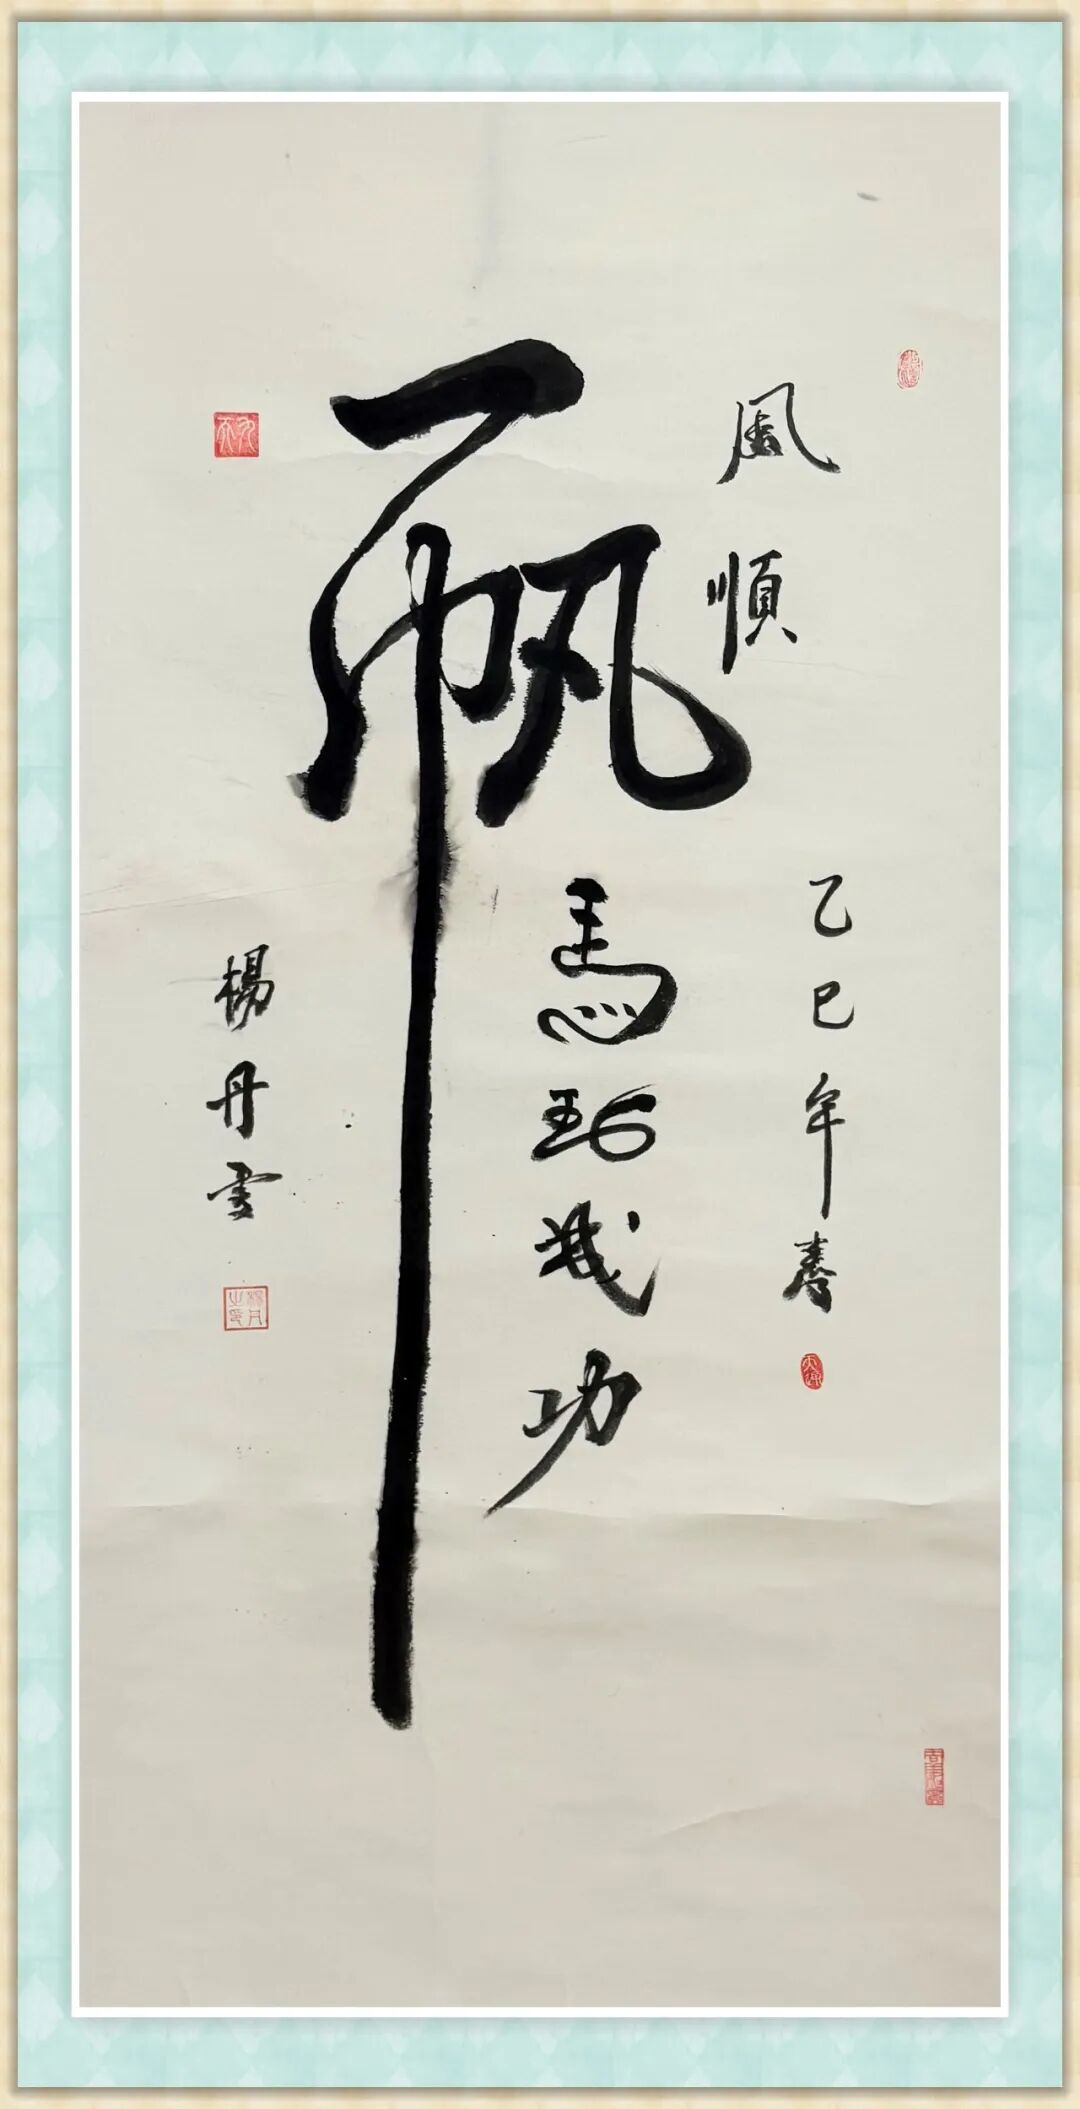 一帆
風順
馬到成功
乙巳年春
楊丹雪